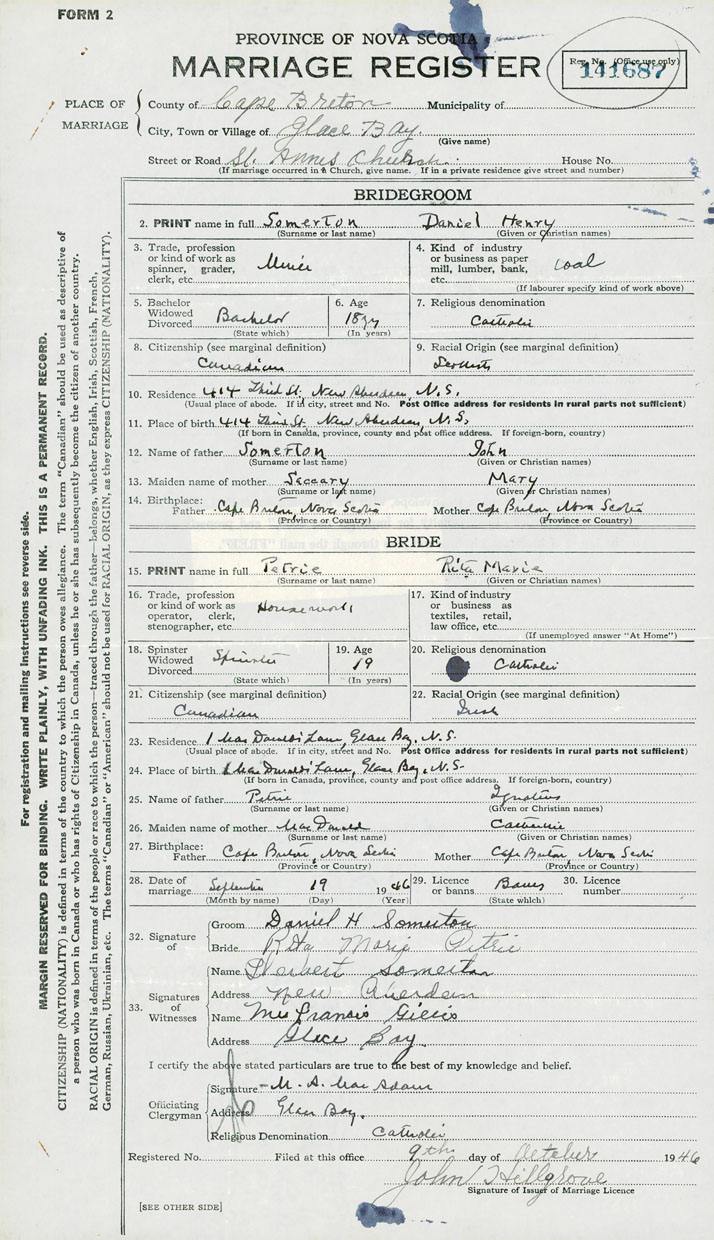 FORM 2
PROVINCE OF NOVA SCOTIA
MARRIAGE REGISTER
Reg. No. (Office use only)
141687
PLACE OF MARRIAGE
County of Cape Breton Municipality of
City, Town or Village of Glace Bay.
(Give name)
Street or Road St. Annes Church. House No.
(If marriage occurred in a Church, give name. If in a private residence give street and number)
BRIDEGROOM
2. PRINT name in full Somerton Daniel Henry
(Surname or last name) (Given or Christian names)
3. Trade, profession or kind of work as spinner, grader, clerk, etc. Miner
4. Kind of industry or business as paper mill, lumber, bank, etc. coal
(If labourer specify kind of work above)
5. Bachelor Widowed Divorced Bachelor
(State which)
6. Age
(In years)
7. Religious denomination
Catholic
8. Citizenship (see marginal definition)
Canadian
9. Racial Origin (see marginal definition)
10. Residence 414 Third St., New Aberdeen, N.S.
(Usual place of abode. If in city, street and No. Post Office address for residents in rural parts not sufficient)
11. Place of birth 414 Third St. New Aberdeen, N.S.
(If born in Canada, province, county and post office address. If foreign-born, country)
12. Name of father Somerton John
(Surname or last name) (Given or Christian names)
13. Maiden name of mother Seccary Mary
(Surname or last name) (Given or Christian names)
14. Birthplace:
Father Cape Breton, Nova Scotia Mother Cape Breton, Nova Scotia
(Province or Country) (Province or Country)
BRIDE
15. PRINT name in full Petrie Rita Marie
(Surname or last name) (Given or Christian names)
16. Trade, profession or kind of work as operator, clerk, stenographer, etc. Housework
17. Kind of industry or business as textiles, retail, law office, etc.
(If unemployed answer "At Home")
18. Spinster Widowed Divorced Spinster
(State which)
19. Age
19
(In years)
20. Religious denomination
Catholic
21. Citizenship (see marginal definition)
Canadian
22. Racial Origin (see marginal definition)
Irish
23. Residence 1 MacDonalds Lane, Glace Bay, N.S.
(Usual place of abode. If in city, street and No. Post Office address for residents in rural parts not sufficient)
24. Place of birth 1 MacDonalds Lane, Glace Bay, N.S.
(If born in Canada, province, county and post office address. If foreign-born, country)
25. Name of father Petrie Ignatius
(Surname or last name) (Given or Christian names)
26. Maiden name of mother MacDonald Catherine
(Surname or last name) (Given or Christian names)
27. Birthplace:
Father Cape Breton, Nova Scotia Mother Cape Breton, Nova Scotia
(Province or Country) (Province or Country)
28. Date of marriage September 19 1946
(Month by name) (Day) (Year)
29. Licence or banns Banns
(State which)
30. Licence number
32. Signature of
Groom Daniel H Somerton
Bride Rita Marie Petrie
33. Signatures of Witnesses
Name Herbert Somerton
Address New Aberdeen
Name Mrs Francis Gillis
Address Glace Bay
I certify the above stated particulars are true to the best of my knowledge and belief.
Officiating Clergyman
Signature M. A. MacAdam
Address Glace Bay.
Religious Denomination Catholic
Registered No. Filed at this office 9th day of October 1946
John Hillgrove
Signature of Issuer of Marriage Licence
[SEE OTHER SIDE]
For registration and mailing instructions see reverse side.
MARGIN RESERVED FOR BINDING. WRITE PLAINLY, WITH UNFADING INK. THIS IS A PERMANENT RECORD.
CITIZENSHIP (NATIONALITY) is defined in terms of the country to which the person owes allegiance. The term "Canadian" should be used as descriptive of
a person who was born in Canada or who has rights of Citizenship in Canada, unless he or she has subsequently become the citizen of another country.
RACIAL ORIGIN is defined in terms of the people or race to which the person—traced through the father—belongs, whether English, Irish, Scottish, French,
German, Russian, Ukrainian, etc. The terms "Canadian" or "American" should not be used for RACIAL ORIGIN, as they express CITIZENSHIP (NATIONALITY).